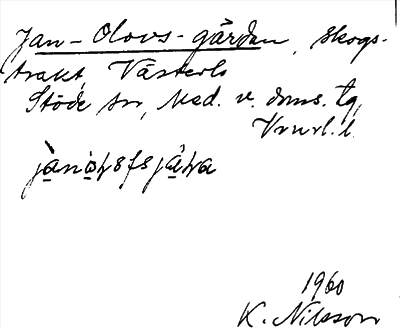 Jan-Olovs-gärden, skogs-
trakt, Västerlo
Stöde sn, Med. v. doms. tg,
Vnrl. l.
jànòɫsfsjäɫa
1960
K. Nilsson